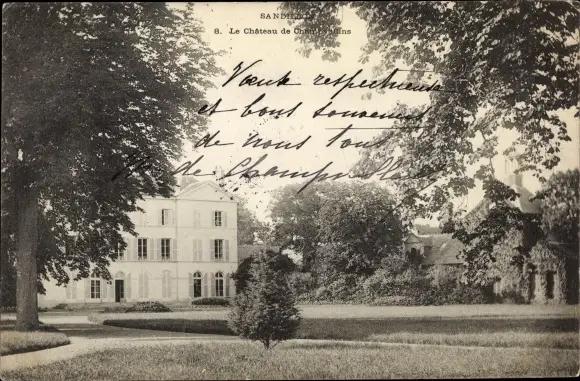 SANDILLON
8. Le Château de Champvallins
Vœux respectueux
et bons souvenirs
de nous tous
de Champvallins